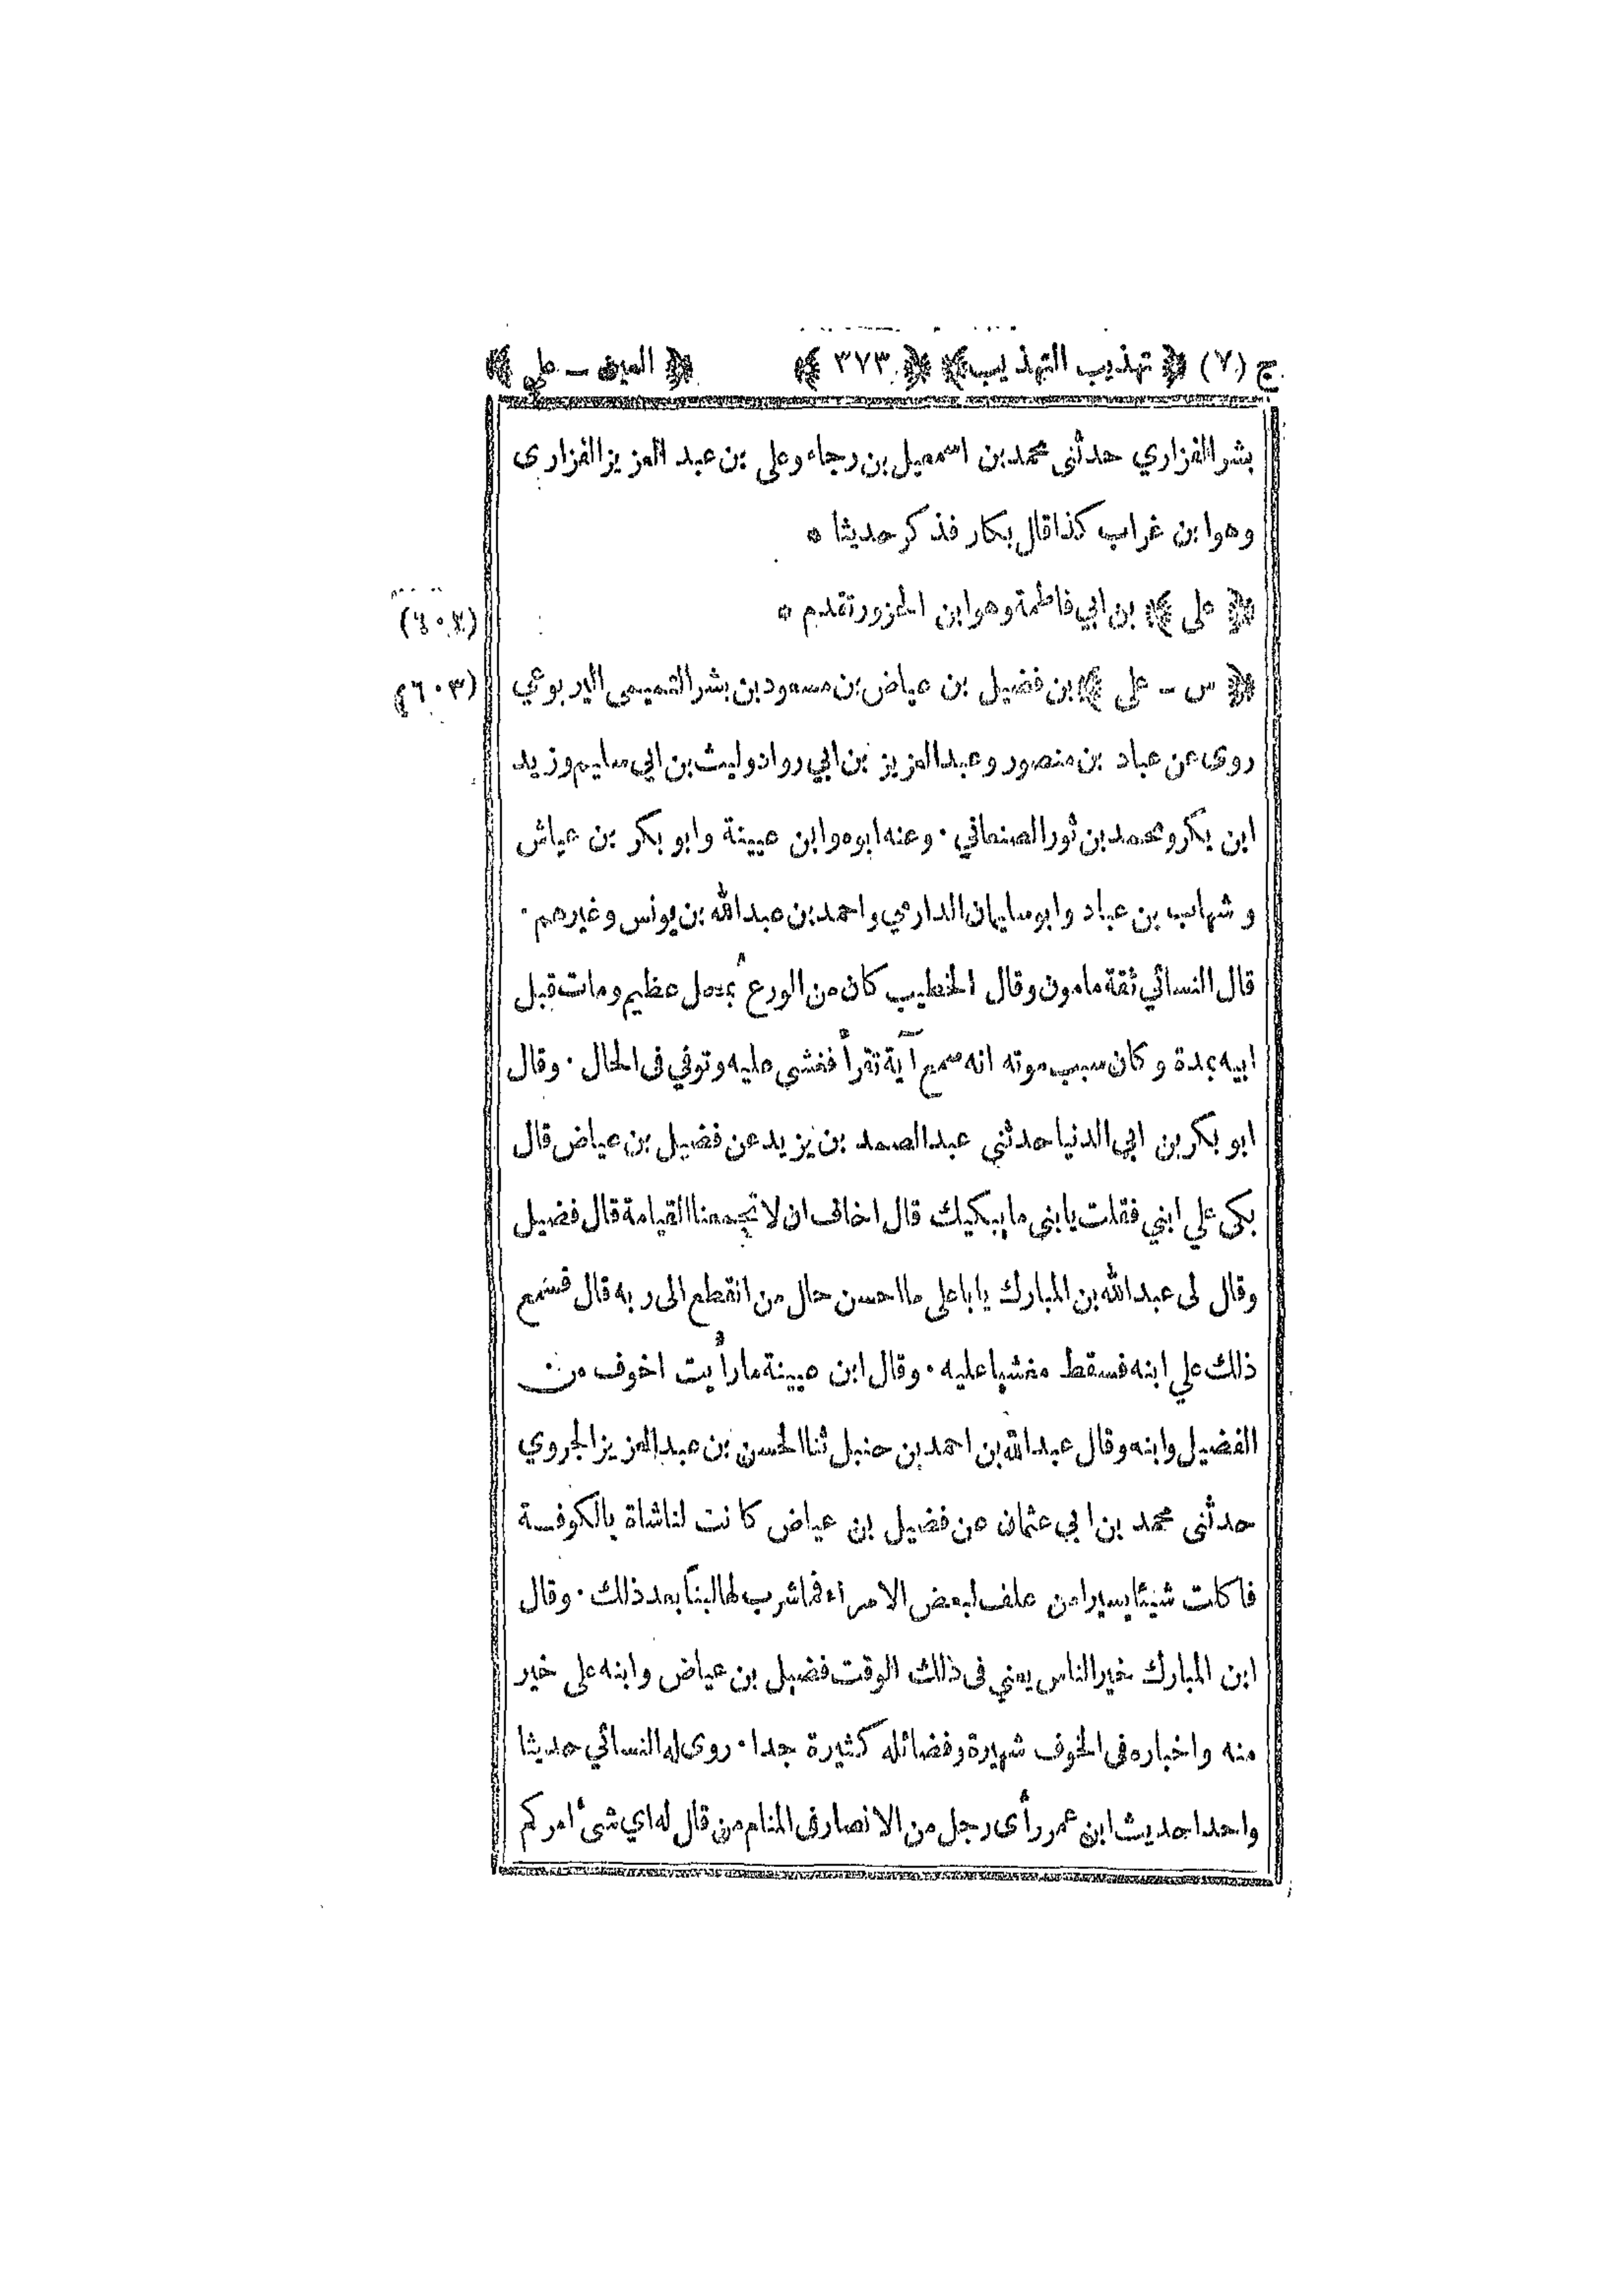 ج (٧) ﴿ تهذيب التهذيب ﴾ ﴿ ٣٧٣ ﴾ ﴿ العين – علي ﴾
بشر الفزاري حدثنى محمد بن اسمعيل بن رجاء وعلى بن عبد العزيز الفزارى
وهو ابن غراب كذا قال بكار فذكر حديثا *
﴿ على ﴾ بن ابي فاطمة وهو ابن الحزور تقدم *
(٦٠٢)
﴿ س – علي ﴾ بن فضيل بن عياض بن مسعود بن بشر التميمى اليربوعي
(٦٠٣)
روى عن عباد بن منصور وعبد العزيز بن ابي رواد وليث بن ابي سليم وزيد
ابن بكر ومحمد بن ثور الصنعاني · وعنه ابوه وابن عيينة وابو بكر بن عياش
وشهاب بن عباد وابو سليمان الدارمي واحمد بن عبد الله بن يونس وغيرهم ·
قال النسائي ثقة مامون وقال الخطيب كان من الورع بمحل عظيم ومات قبل
ابيه بمدة وكان سبب موته انه سمع آية تقرأ فغشي عليه وتوفي فى الحال · وقال
ابو بكر بن ابي الدنيا حدثني عبد الصمد بن يزيد عن فضيل بن عياض قال
بكى علي ابني فقلت يا بنى ما يبكيك قال اخاف ان لا تجمعنا القيامة قال فضيل
وقال لى عبد الله بن المبارك يا با على ما احسن حال من انقطع الى ربه قال فسمع
ذلك علي ابنه فسقط مغشيا عليه · وقال ابن عيينة ما رأيت اخوف من
الفضيل وابنه وقال عبد الله بن احمد بن حنبل ثنا الحسن بن عبد العزيز الجروي
حدثنى محمد بن ابي عثمان عن فضيل بن عياض كانت لنا شاة بالكوفة
فاكلت شيئا يسيرا من علف لبعض الامراء فما شرب لها لبنا بعد ذلك · وقال
ابن المبارك خير الناس يعني فى ذلك الوقت فضيل بن عياض وابنه على خير
منه واخباره فى الخوف شهيرة وفضائله كثيرة جدا · روى له النسائي حديثا
واحدا حديث ابن عمر رأى رجل من الانصار فى المنام من قال له اي شئ امركم